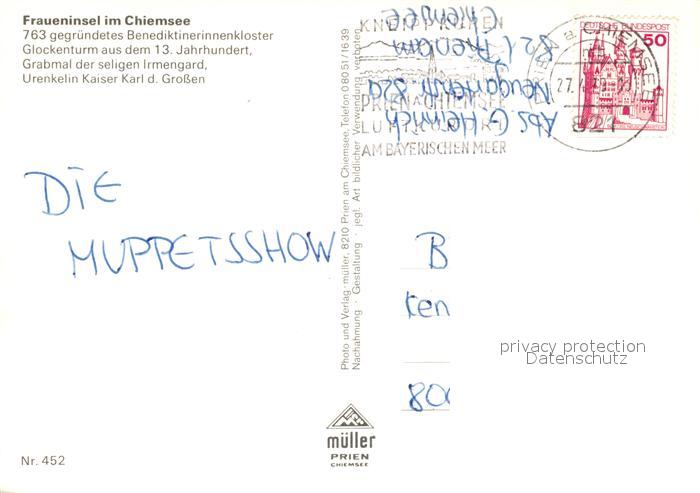 Fraueninsel im Chiemsee
763 gegründetes Benediktinerinnenkloster
Glockenturm aus dem 13. Jahrhundert,
Grabmal der seligen Irmengard,
Urenkelin Kaiser Karl d. Großen
DIE
MUPPETSSHOW
Photo und Verlag: müller, 8210 Prien am Chiemsee, Telefon 0 80 51/16 39
Nachahmung · Gestaltung · jegl. Art bildlicher Verwendung verboten
DEUTSCHE BUNDESPOST
50
CHIEMSEE
821
PRIEN A CHIEMSEE
LUFTKURORT
AM BAYERISCHEN MEER
Abs G Heinrich
Neugartenstr 82a
821 Prien am
Chiemsee
B
ken
80
privacy protection
Datenschutz
müller
PRIEN
CHIEMSEE
Nr. 452